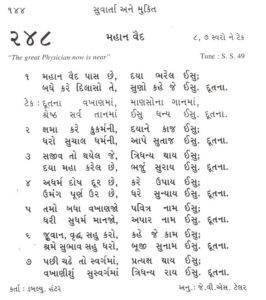 ૧૪૪ સુવાર્તા અને મુક્તિ
૨૪૮ મહાન વૈદ ૮, ૭ સ્વરો ને ટેક
"The great Physician now is near" Tune : S. S. 49
૧ મહાન વૈદ પાસ છે, દયા ભરેલ ઈસુ;
બધે કરે દિલાસો તે, સુણો કહે જે ઈસુ. દૂતના.
ટેક: દૂતના વખાણમાં, માણસોના ગાનમાં,
શ્રેષ્ઠ સર્વ તાનમાં ઈસુ ધન્ય ઈસુ. દૂતના.
૨ ક્ષમા કરે કુકર્મની, દયાને કાજ ઈસુ;
ધરો સુચાલ ધર્મની, આપે સુતાજ ઈસુ. દૂતના.
૩ સજીવ તો થયેલ જે, ત્રિધન્ય થાય ઈસુ;
દયા મહા કરેલ છે, ભજું સુરાય ઈસુ. દૂતના.
૪ અધર્મ દોષ દૂર છે, કરે ઉપાય ઈસુ;
ઉમંગ પૂર્ણ ઉર છે, ધરે સુન્યાય ઈસુ. દૂતના.
૫ તમો બધા વખાણજો પવિત્ર નામ ઈસુ;
ધરી સુધર્મ માનજો, અપાર નામ ઈસુ. દૂતના.
૬ જુવાન, વૃદ્ધ સહુ કરો, કહે જે કામ ઈસુ;
શ્રમ સુભાવ સહુ ધરો, બૂજી સુનામ ઈસુ. દૂતના.
૭ પછી ચઢે તો સ્વર્ગમાં, પ્રત્યક્ષ થાય ઈસુ;
વખાણીશું સુસ્વર્ગમાં ત્રિધન્ય રાય ઈસુ. દૂતના.
કર્તા : ડબલ્યુ. હંટર અનુ.: જે.વી.એસ. ટેલર